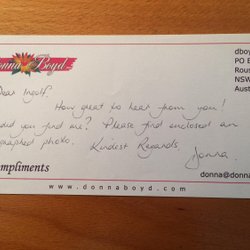 Donna Boyd
dboy
PO B
Rous
NSW
Austr
Dear Ingolf,
How great to hear from you!
did you find me? Please find enclosed an
ographed photo.
Kindest Regards,
Donna.
ompliments
donna@donna
www.donnaboyd.com